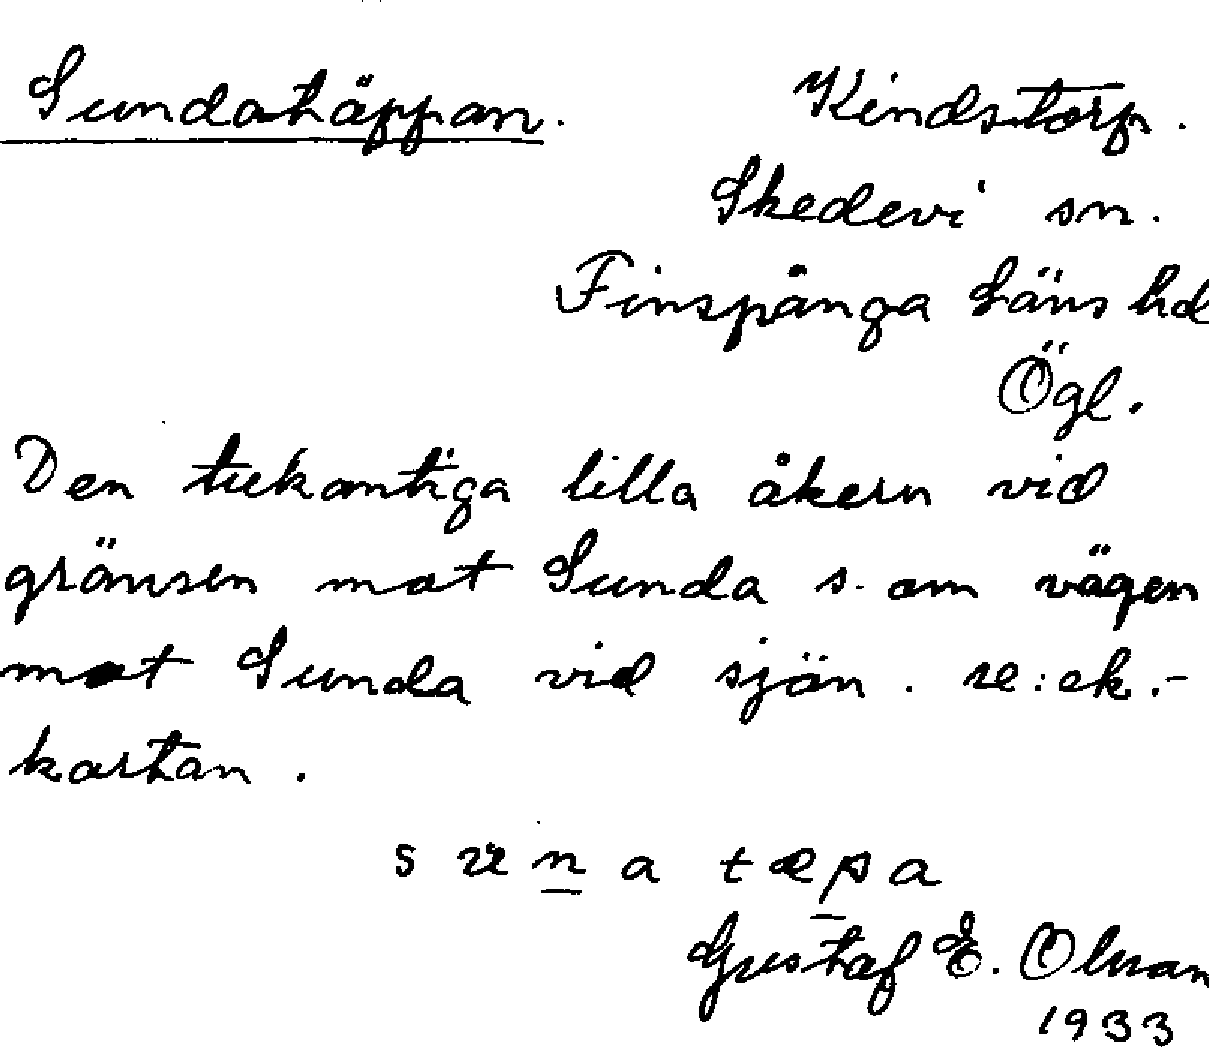 Sundatäppan. Kindstorp.
Skedevi sn.
Finspånga Läns hd
Ögl.
Den trekantiga lilla åkern vid
gränsen mot Sunda s. om vägen
mot Sunda vid sjön. se: ek.-
kartan.
s u n a t æ p a
Gustaf E. Olsson
1933